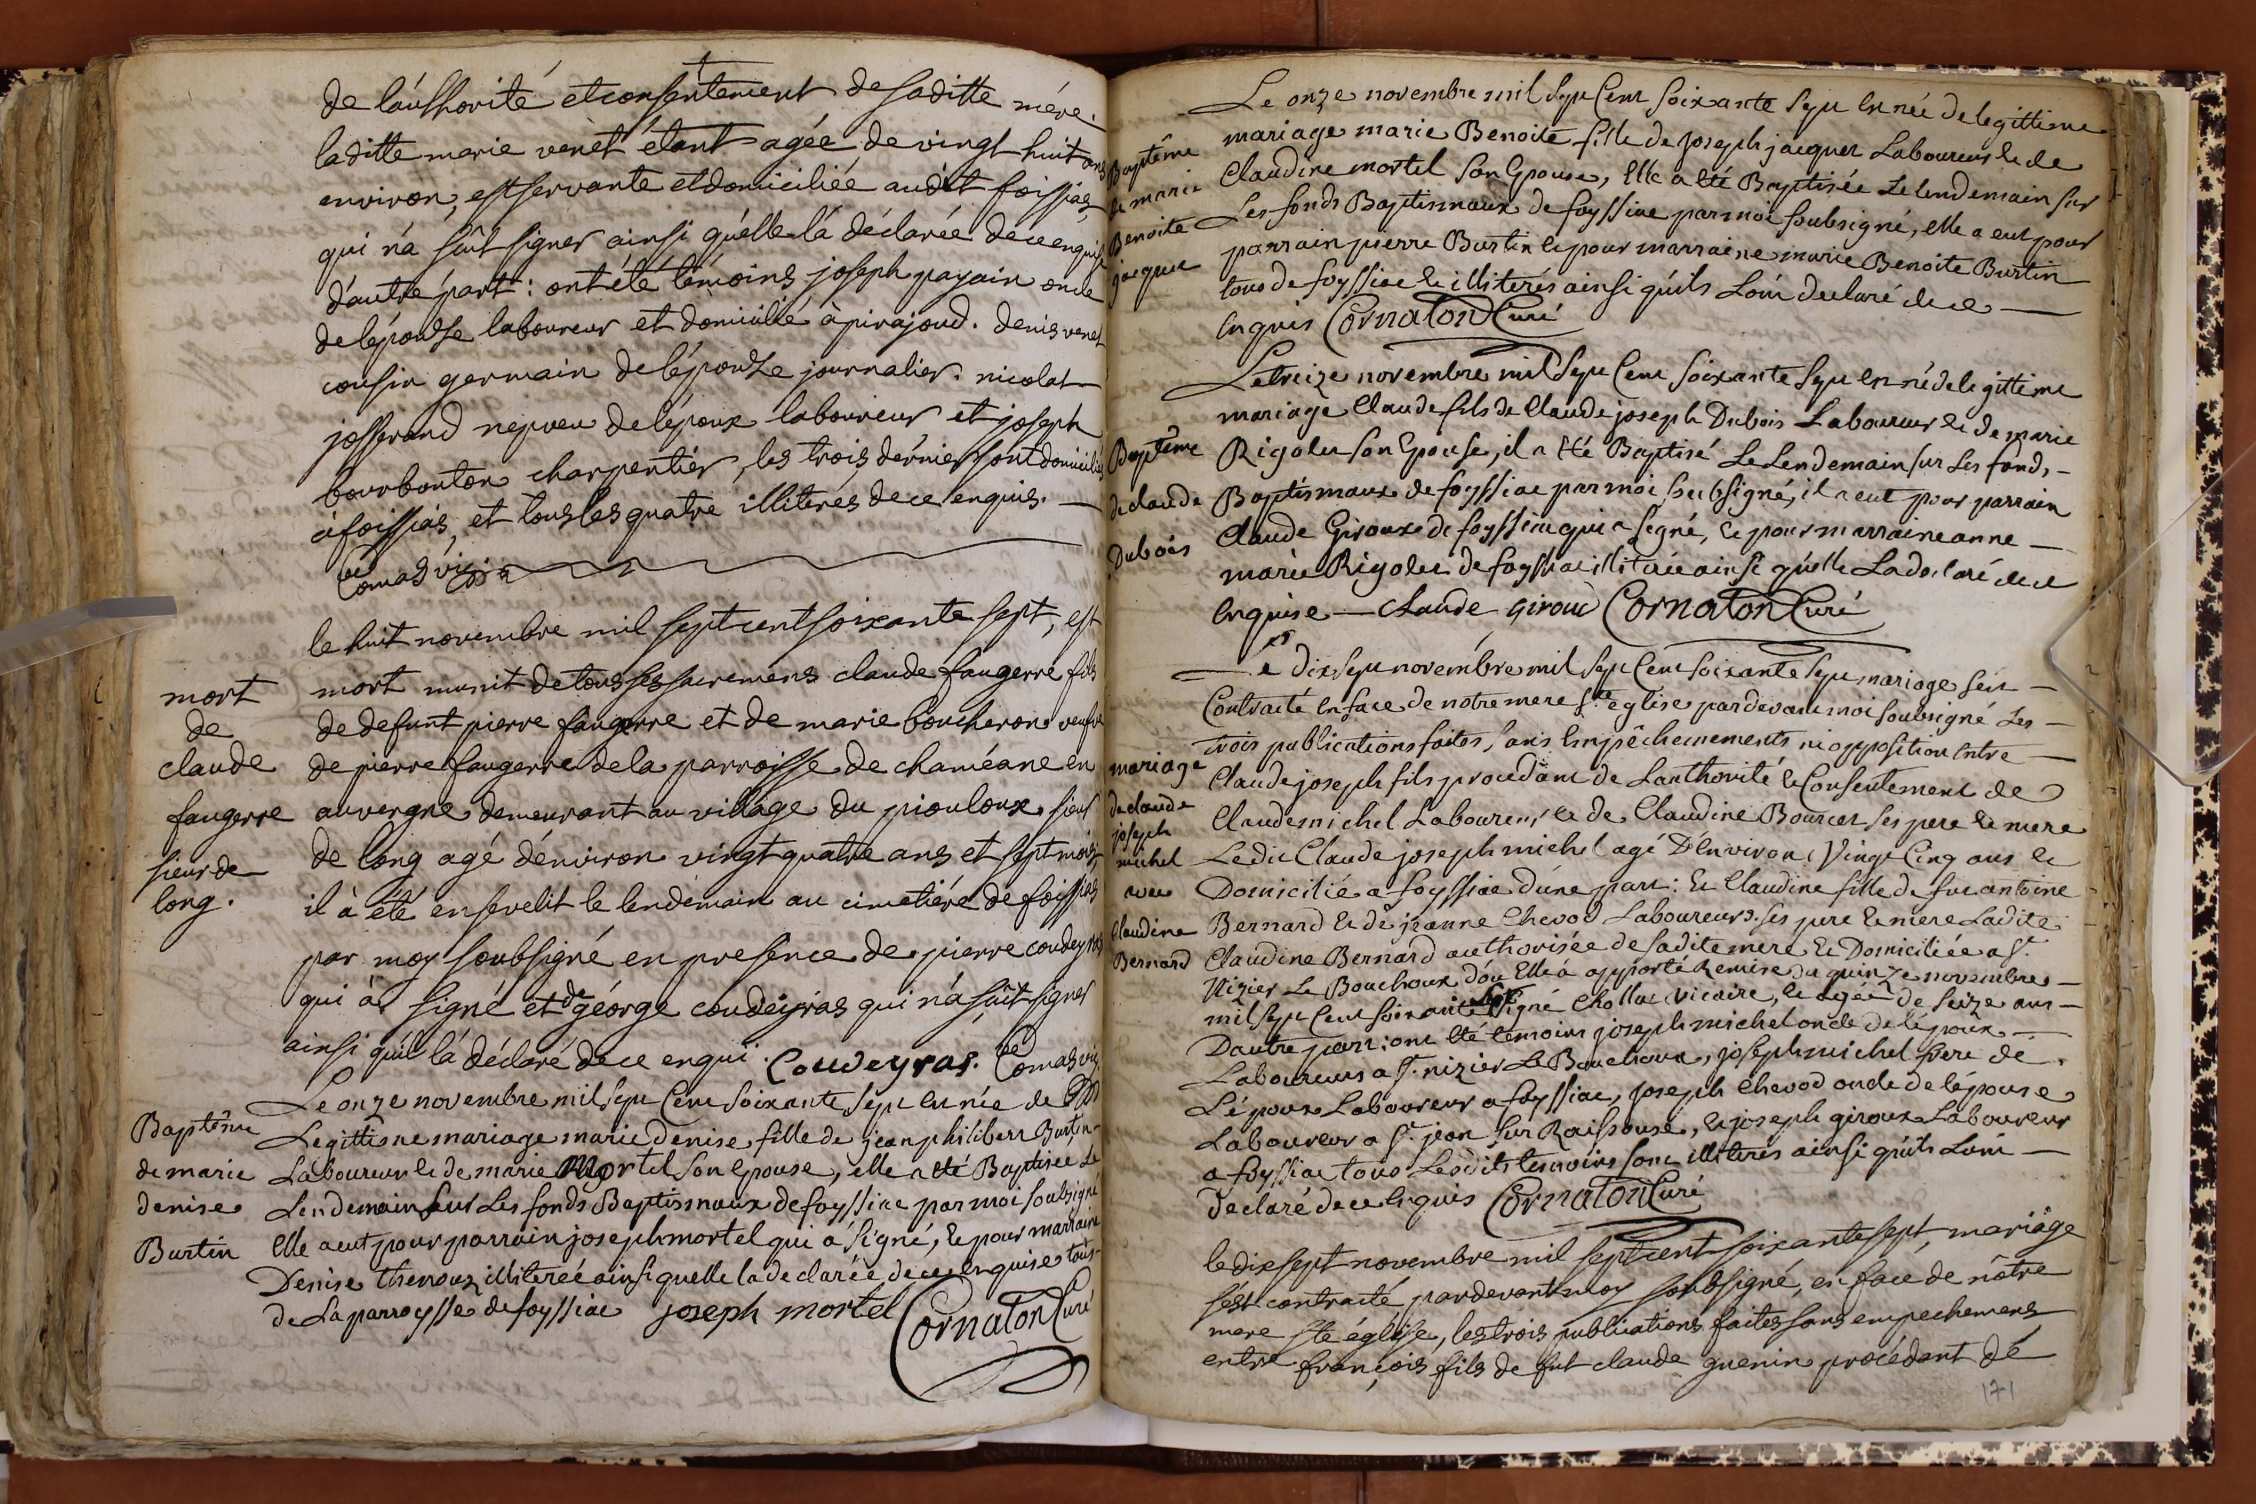 de láuthorité et consentement de saditte mére.
laditte marie venèt étant agée de vingt huit ans
environ, est servante et domiciliée audit foissiac
qui n'a sûit signer ainsi qu'élle lá déclarée de ce enquise
d'autre part : ont été témoins joseph payain oncle
de lépouse laboureur et domicilié à pirajoud. denis venet
cousin germain de lépouse journalier. nicolas
josserand nepveu de lépoux laboureur et joseph
bourbonton charpentier, les trois dérniers sont domiciliés
à foissiàs, et tous les quatre illiterés de ce enquis.
Comas vic
le huit novembre mil sept cent soixante sept, est
mort munit de tous ses sacremens claude faugerre fils
de defunt pierre faugerre et de marie boucheron veufve
de pierre faugerre de la parroisse de chaméane en
auvergne demeurant au village du piouloux, sieur
de long agé dénviron vingt quatre ans et sept mois,
il à été ensevelit le lendemain au cimetiére de foissias
par moy soubsigné en presence de pierre coudeyras
qui à signé et de géorge coudeyras qui n'a sûit signer
ainsi qu'il lá déclaré de ce enqui. Coudeyras. Comas vic
mort
de
claude
faugerre
sieur de
long.
Le onze novembre mil sept Cent soixante sept Est née de
Legittime mariage marie denise fille de jean philibert Burtin
Laboureur & de marie Mortel son Epouse, elle a Eté Baptisée Le
Lendemain sur Les fonds Baptismaux de foyssiac par moi soubsigné
Elle a eut pour parrain joseph mortel qui á signé, & pour marraine
Denise thenoux illiterée ainsi quelle la declarée de ce enquise tous
de La parroysse de foyssiac joseph mortel Cornaton Curé
Baptême
de marie
denise
Burtin
Le onze novembre mil sept Cent soixante sept Est née de legittime
mariage marie Benoite fille de joseph jacquet Laboureur & de
Claudine mortel son Epouse, Elle a Eté Baptisée Le lendemain sur
Les fonds Baptismaux de foyssiac par moi soubsigné, elle a eut pour
parrain pierre Burtin & pour marraine marie Benoite Burtin
tous de foyssiac & illiterés ainsi qu'ils L'ont declaré de ce
Enquis Cornaton Curé
Baptême
de marie
Benoite
jacquet
Le treize novembre mil sept Cent soixante sept Est né de legittime
mariage Claude fils de Claude joseph Dubois Laboureur & de marie
Rigolet son Epouse, il a Eté Baptisé Le Lendemain sur Les fonds
Baptismaux de foyssiac par moi soubsigné, il a eut pour parrain
Claude Giroux de foyssiac qui a signé, & pour marraine anne
marie Rigolet de foyssiac illiterée ainsi qu'elle La declaré de ce
Enquise Claude giroud Cornaton Curé
Baptême
de claude
Dubois
Le dix sept novembre mil sept Cent soixante sept mariage s'est
Contracté en face de notre mere Ste eglise pardevant moi soubsigné Les
trois publications faites, sans Empêchemements ni opposition Entre
Claude joseph fils procedant de Lauthorité & Consentement de
Claude michel Laboureur & de Claudine Bourcet ses pere & mere
Ledit Claude joseph michel agé D'environ Vingt Cinq ans &
Domicilié a foyssiac d'une part : Et Claudine fille de feu antoine
Bernard & de jeanne Chevod Laboureurs ses pere & mere Ladite
Claudine Bernard authorisée de sadite mere & Domiciliée a St
Nizier Le Bouchoux d'ou Elle a apporté Remise du quinze novembre
mil sept Cent soixante sept signé Chollat vicaire, & agée de seize ans
D'autre part : ont Eté temoins joseph michel oncle de lépoux
Laboureurs a St nizier Le Bouchoux, joseph michel frere de
Lépoux Laboureur a foyssiac, joseph Chevod oncle de lépouse
Laboureur a St jean sur Raissouse, & joseph giroux Laboureur
a foyssiac tous Lesdits temoins sont illiterés ainsi qu'ils L'ont
Declaré de ce Enquis Cornaton Curé
mariage
de claude
joseph
michel
avec
Claudine
Bernard
le dix sept novembre mil sept cent soixante sept, mariàge
s'est contracté pardevant moy soubsigné, en face de nôtre
mere ste église, les trois publications faites sans empechemens
entre françois fils de fut claude guenin procédant dé
171